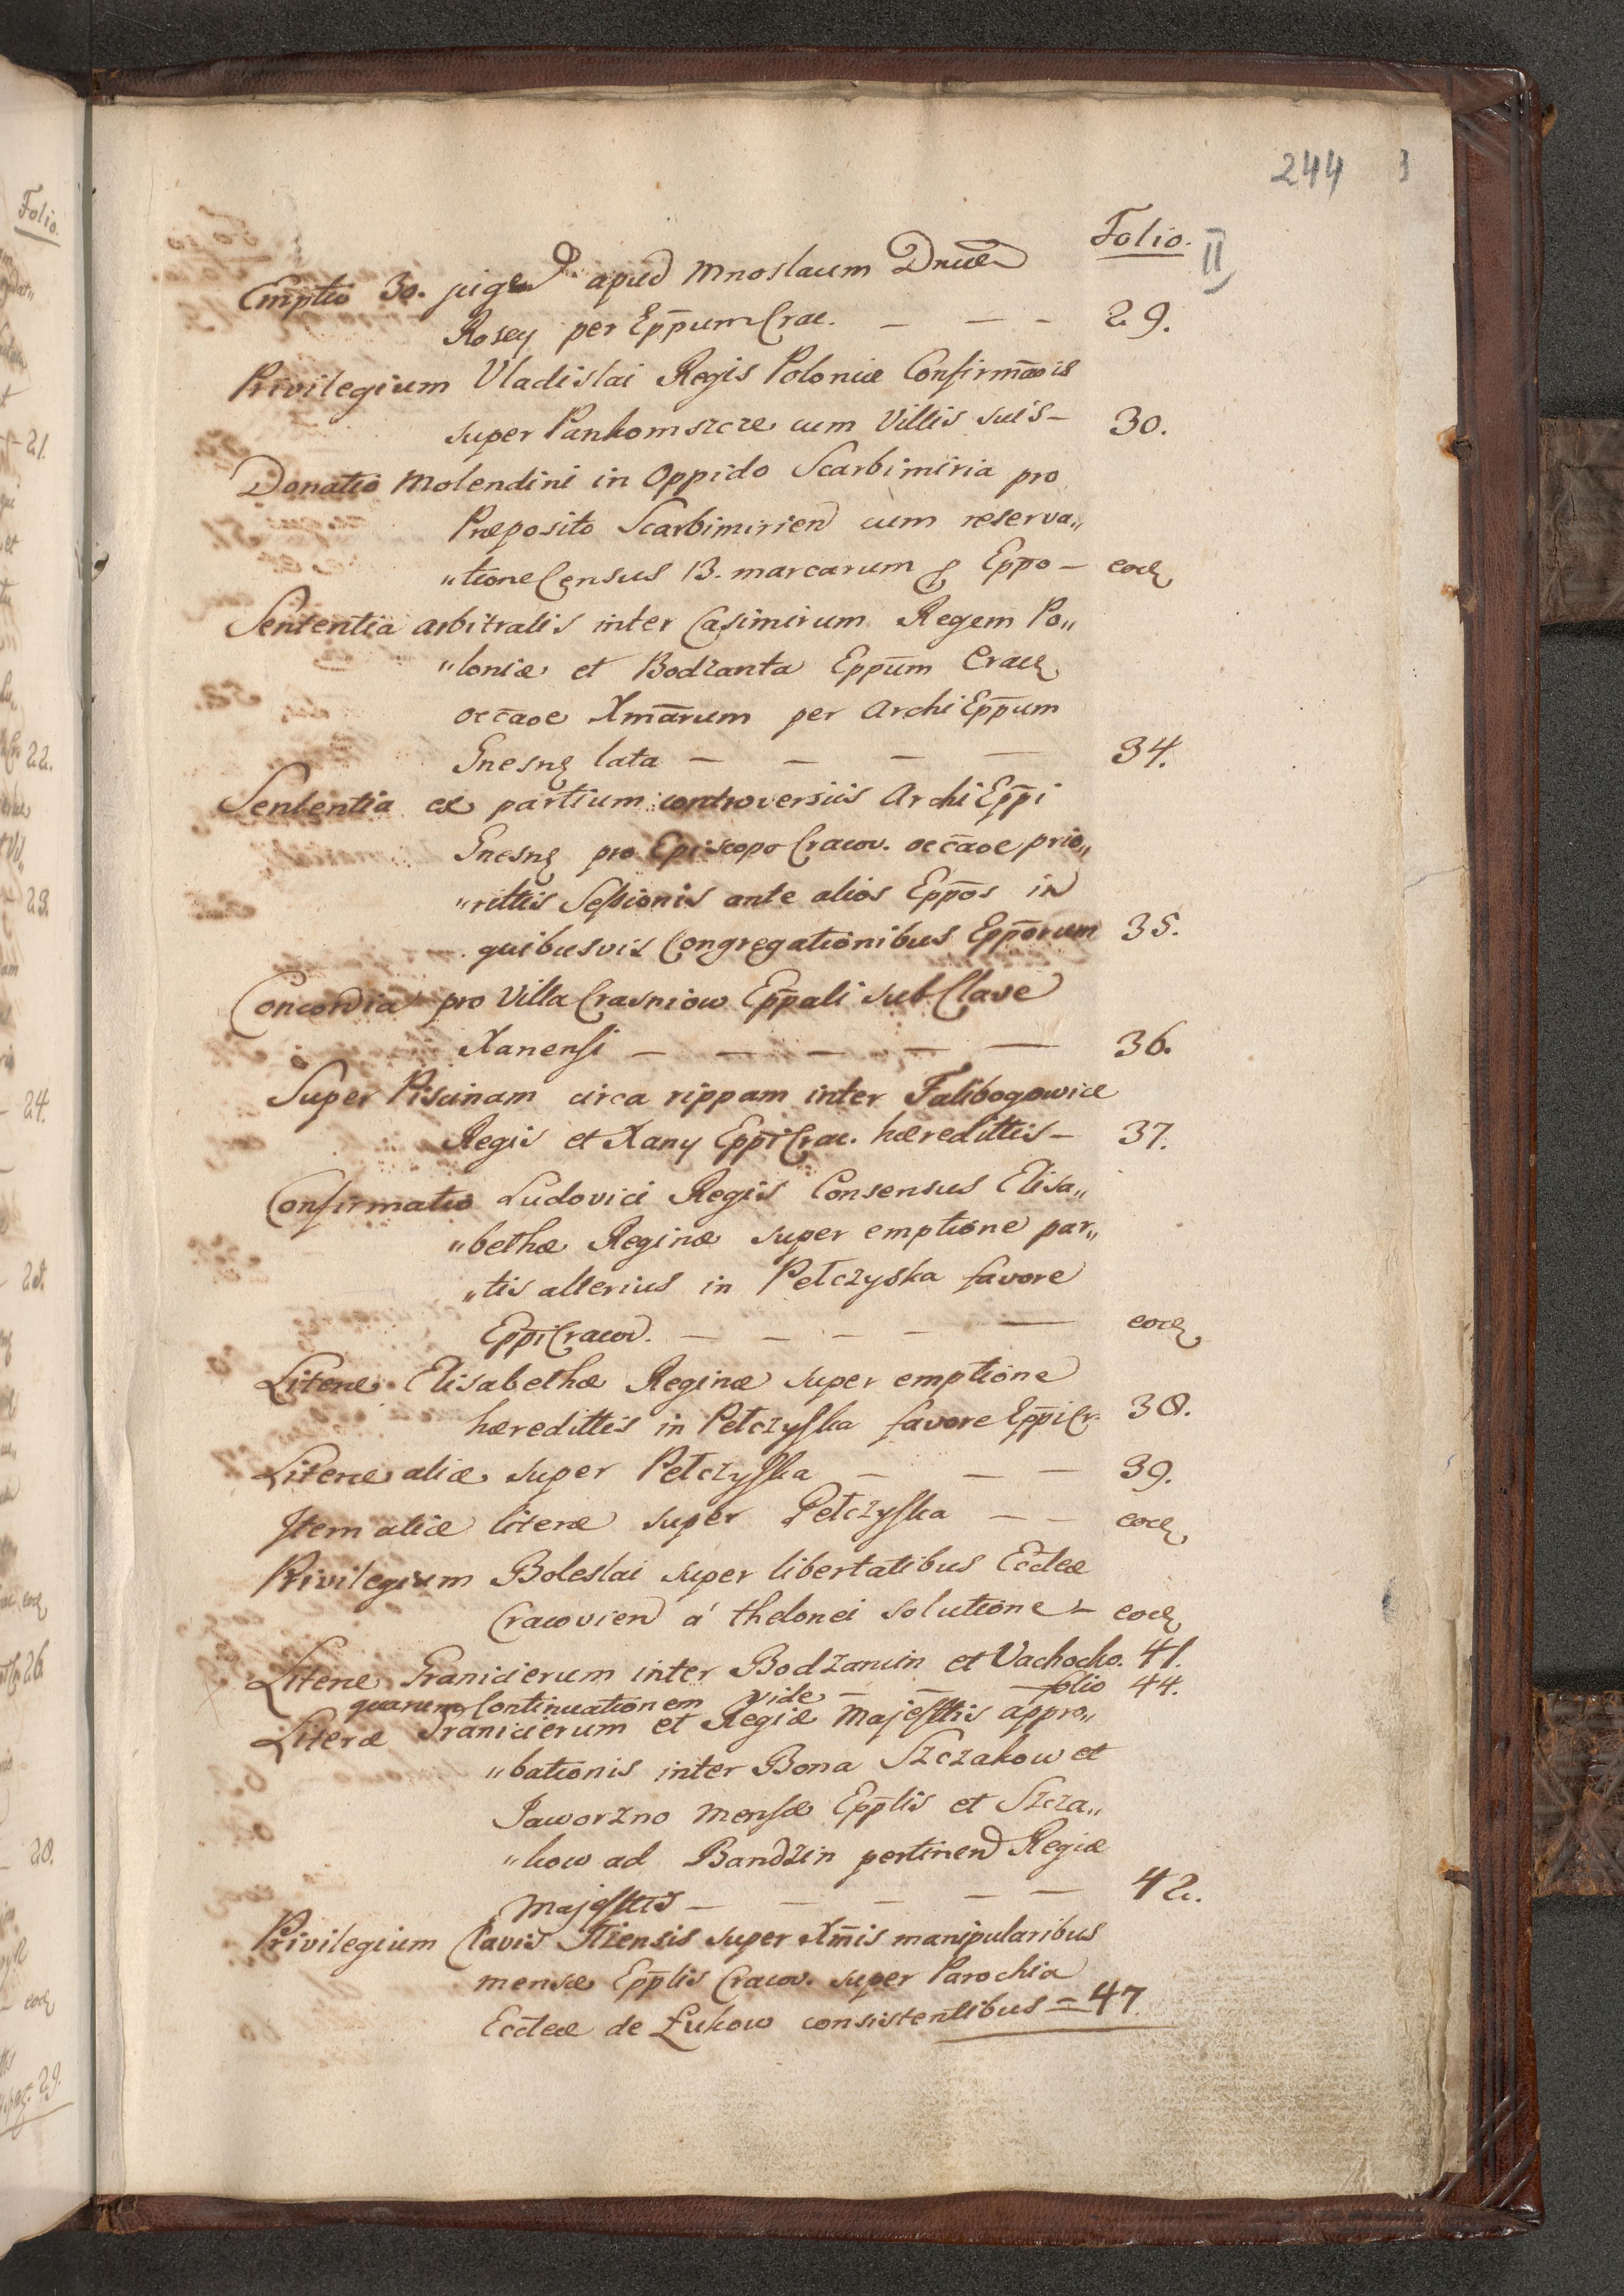 244
Folio.
II
Emptio 30. apud Mnoslaum
Rosey per Epp̄um Crac. — — — 29.
Privilegium Vladislai Regis Poloniæ Confirmāois
super Pankomszcze cum Villis suis — 30.
Donatio Molendini in Oppido Scarbimiria pro
Præposito Scarbimirien cum reserva„
„tione Census 13. marcarum Eppo — eod
Sententia arbitralis inter Casimirum Regem Po„
„loniæ et Bodzanta Epp̄um Crac
occāoe Xmārum per Archi Epp̄um
Gnesn lata — — — — 34.
Sententia ex partium controversiis Archi Epp̄i
Gnesn pro Episcopo Cracov. occāoe prio„
„rittis Sessionis ante alios Epp̄os in
quibusvis Congregationibus Epp̄orum 35.
Concordia pro Villa Crasniow Epp̄ali sub Clave
Xanensi — — — — — 36.
Super Piscinam circa rippam inter Falibogowice
Regis et Xany Epp̄i Crac. hæredittis — 37.
Confirmatio Ludovici Regis Consensus Elisa„
„bethæ Reginæ super emptione par„
„tis alterius in Pełczyska favore
Epp̄i Cracov. — — — — — eod
Literæ Elisabethæ Reginæ super emptione
hæredittis in Pełczyska favore Epp̄i Cr. 38.
Literæ aliæ super Pełczyska — — — 39.
Item aliæ literæ super Pełczyska — — eod
Privilegium Boleslai super libertatibus Eccleæ
Cracovien á thelonei solutione — eod
Literæ Granicierum inter Bodzancin et Vachocko. 41.
quarum Continuationem vide — — folio 44.
Literæ Granicierum et Regiæ Majesttis appro„
„bationis inter Bona Szczakow et
Jaworzno mensæ Epp̄lis et Szcza„
„kow ad Bandzin pertinen Regiæ
Majesttis — — — — — 42.
Privilegium Clavis Ilzensis super Xm̄is manipularibus
mensæ Epp̄lis Cracov. super Parochia
Eccleæ de Łukow consistentibus = 47